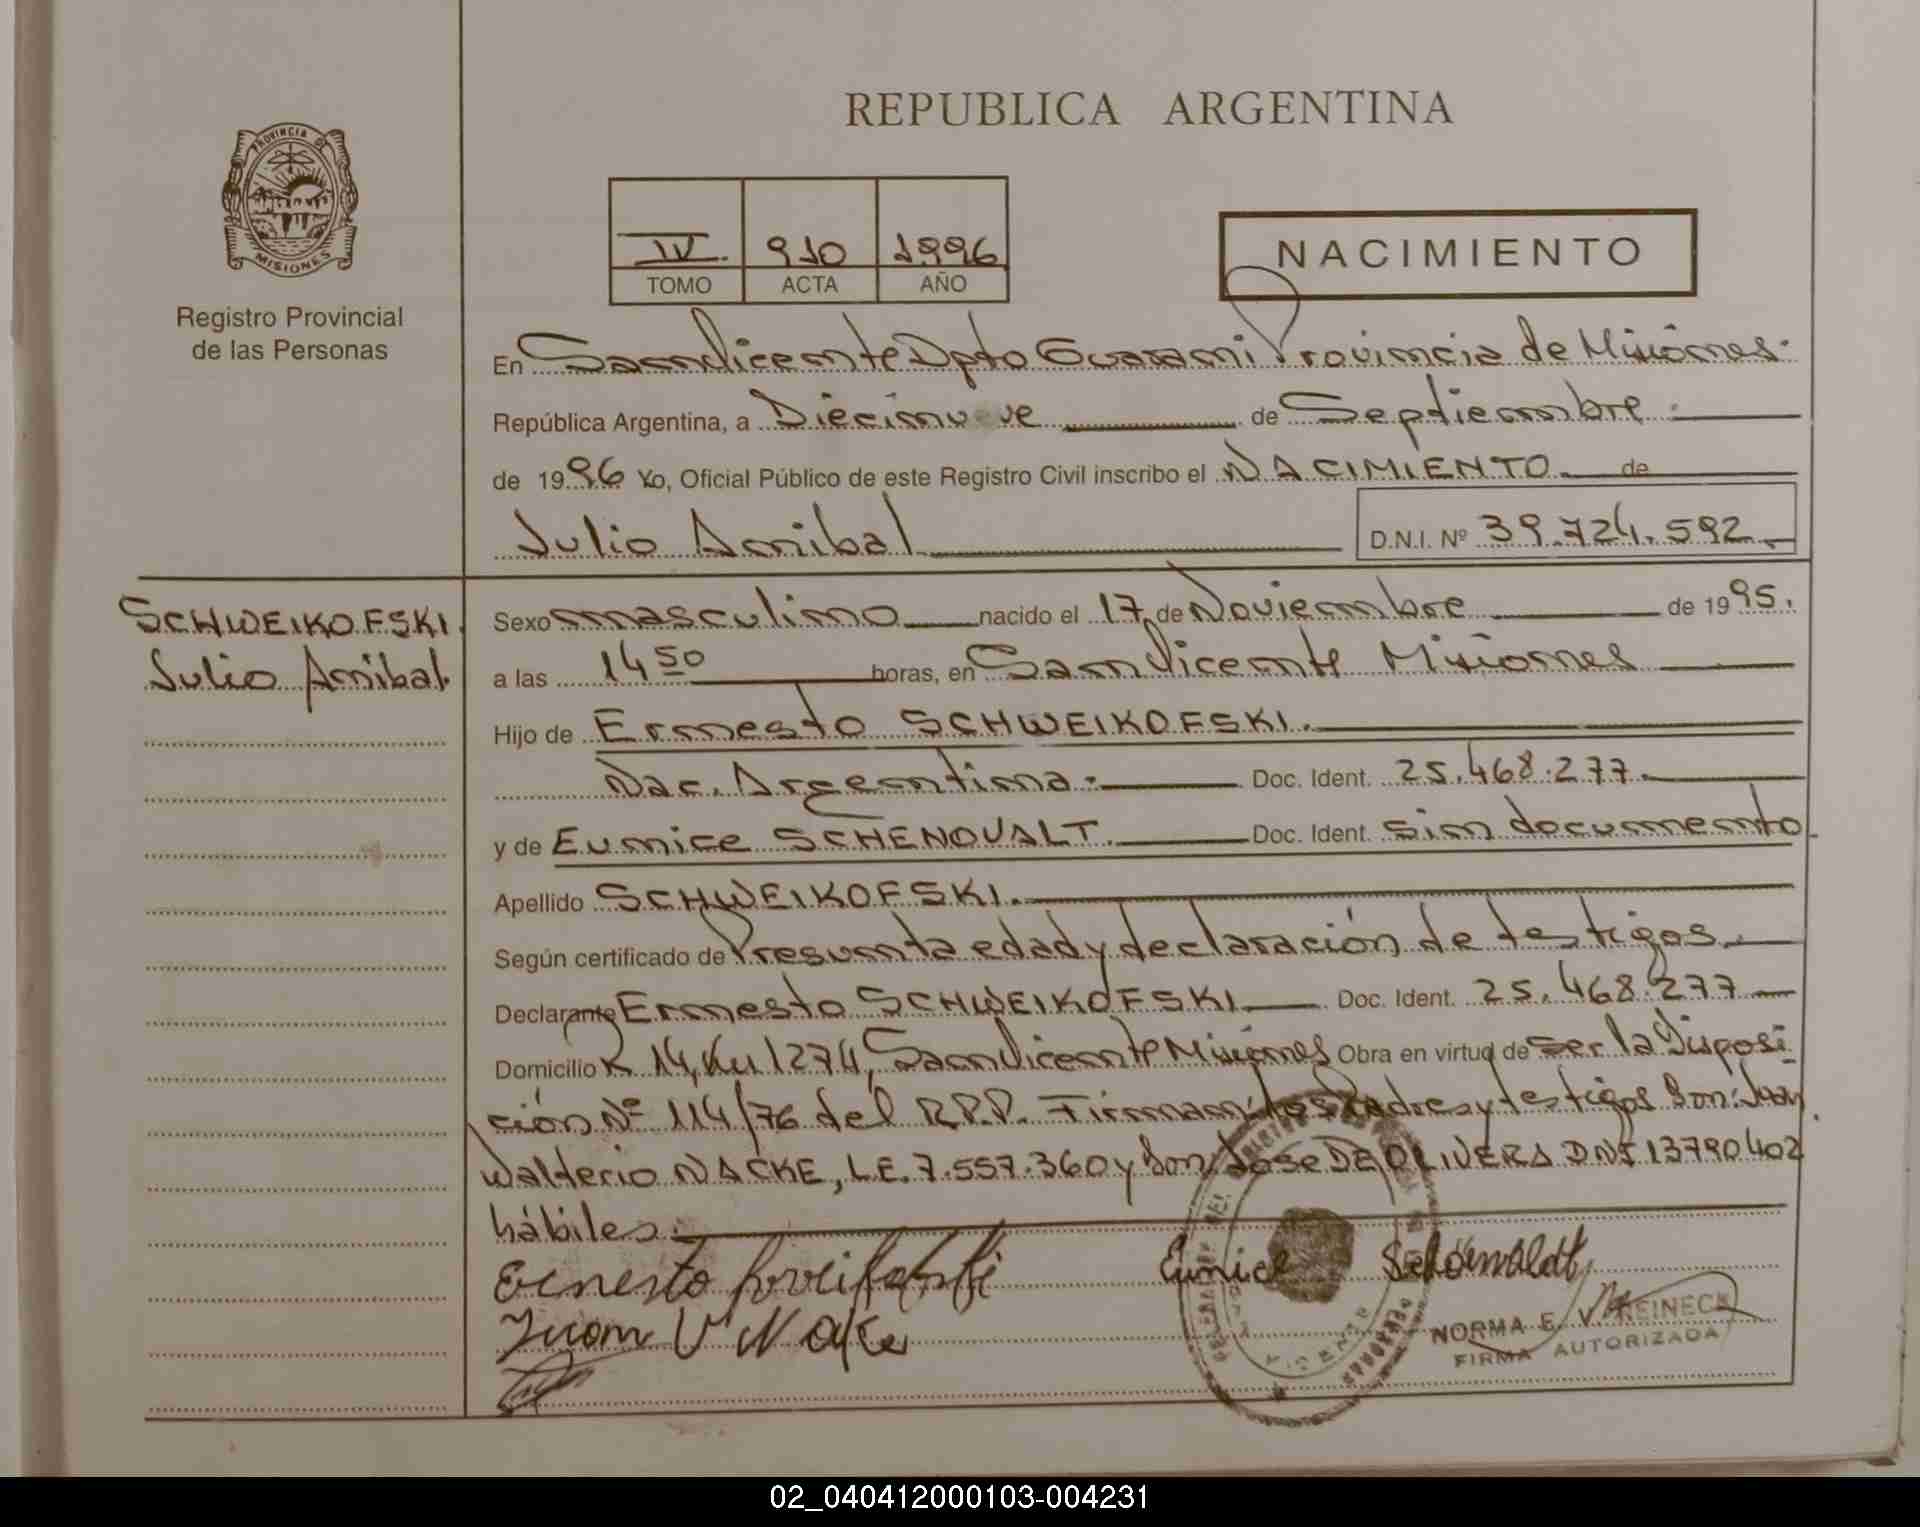 REPUBLICA ARGENTINA
PROVINCIA DE
MISIONES
Registro Provincial
de las Personas
IV. 910 1996
TOMO ACTA AÑO
NACIMIENTO
En San Vicente Dpto Guarani Provincia de Misiones.
República Argentina, a Diecinueve de Septiembre.
de 1996 Yo, Oficial Público de este Registro Civil inscribo el NACIMIENTO. de
Julio Anibal D.N.I. Nº 39.724.592.
SCHWEIKOFSKI.
Julio Anibal.
Sexo masculino nacido el 17 de Noviembre de 1995.
a las 14 50 horas, en San Vicente Misiones
Hijo de Ernesto SCHWEIKOFSKI.
Nac. Argentina. Doc. Ident. 25.468.277.
y de Eunice SCHENOVALT. Doc. Ident. sin documento.
Apellido SCHWEIKOFSKI.
Según certificado de Presunta edad y declaración de testigos.
Declarante Ernesto SCHWEIKOFSKI Doc. Ident. 25.468.277
Domicilio R 14, Km 1274, San Vicente Misiones Obra en virtud de Ser la Disposi
ción Nº 114/76 del R.P.P. Firman: los Padres y testigos Son: Juan
Walterio NACKE, L.E. 7.557.360 y Don: Jose DE OLIVERA DNI 13790402
hábiles.
Ernesto
Eunice Schönvaldt
Juan V Nake
NORMA E. V. REINECK
FIRMA AUTORIZADA
02_040412000103-004231